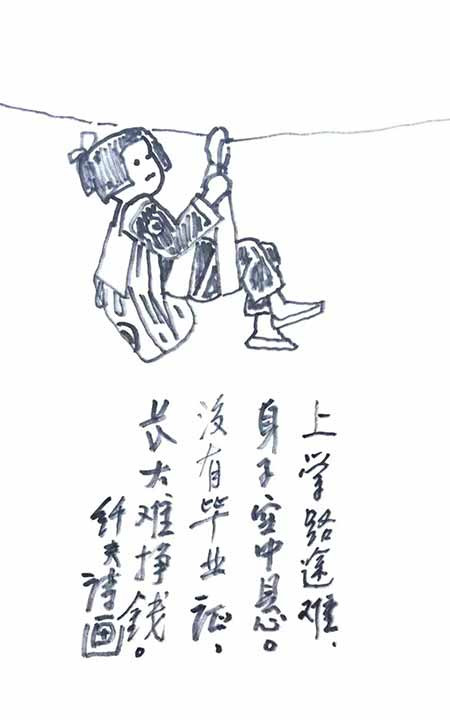 上学路途难、
身子空中悬。
没有毕业证、
长大难挣錢。
纤夫诗画